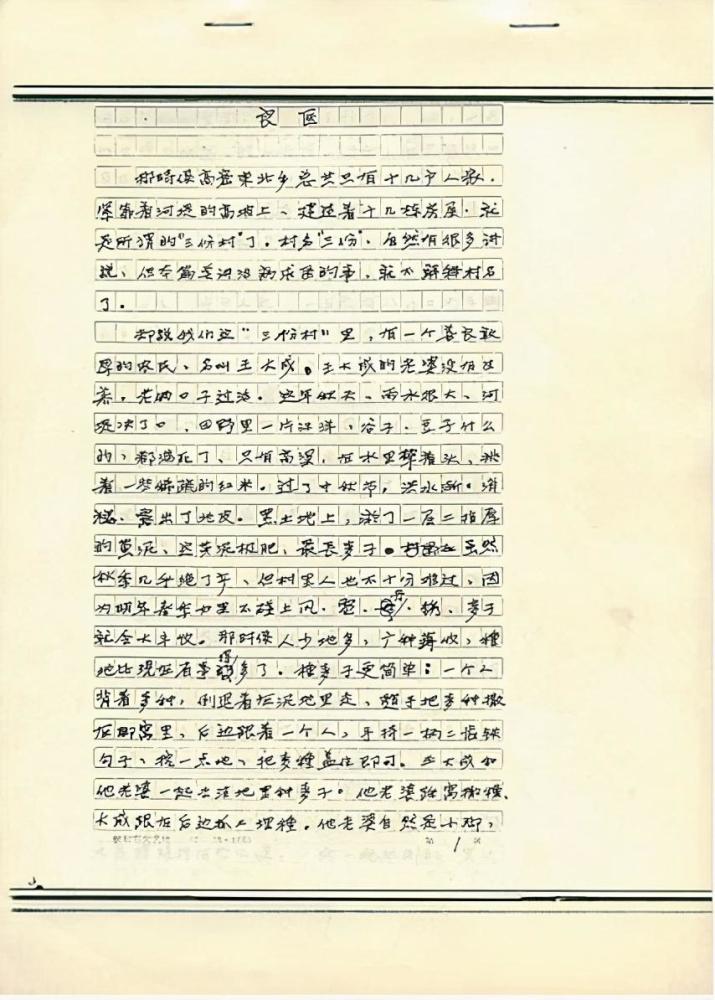 良医
那时候高密东北乡总共只有十几户人家，
紧靠着河堤的高坡上，建造着十几栋房屋，就
是所谓的“三份村”了。村名“三份”，自然有很多讲
说，但本篇是讲治病求医的事，就不解释村名
了。
却说我们这“三份村”里，有一个善良敦
厚的农民，名叫王大成。王大成的老婆没有生
养，老两口子过活。这年秋天，雨水很大，河
堤决了口，田野里一片汪洋，谷子、豆子什么
的，都淹死了，只有高粱，在水里擎着头，挑
着一些稀疏的红米。过了中秋节，洪水渐渐消
褪，露出了地皮。黑土地上，淤了一层二指厚
的黄泥，这黄泥极肥，最长麦子。虽然
秋季几乎绝了产，但村里人也不十分难过，因
为明年春季如果不碰上风、雹、丹、锈，麦子
就会大丰收。那时候人少地多，广种薄收，种
地比现在省事得多了。种麦子更简单：一个人
背着麦种，倒退着在泥地里走，随手把麦种撒
在脚窝里，后边跟着一个人，手持一柄二齿铁
勾子，挖一点地，把麦种盖住即可。王大成和
他老婆一起去洼地里种麦子。他老婆踩窝撒种，
大成跟在后边抓土埋种。他老婆自然是小脚，
第1页